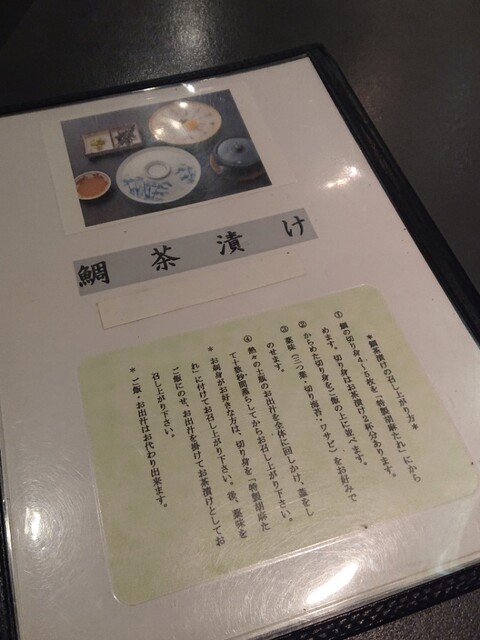 鯛茶漬け
＊鯛茶漬けの召し上がり方＊
① 鯛の切り身4〜5枚を「特製胡麻たれ」にから
めます。切り身はお茶漬け2杯分あります。
② からめた切り身をご飯の上に並べます。
③ 薬味（三つ葉・切り海苔・ワサビ）をお好みで
のせます。
④ 熱々の土瓶のお出汁を全体に回しかけ、蓋をし
て十数秒間蒸らしてからお召し上がり下さい。
＊お刺身がお好きな方は、切り身を「特製胡麻た
れ」に付けてお召し上がり下さい。後、薬味を
ご飯にのせ、お出汁を掛けてお茶漬けとしてお
召し上がり下さい。
＊ご飯・お出汁はお代わり出来ます。